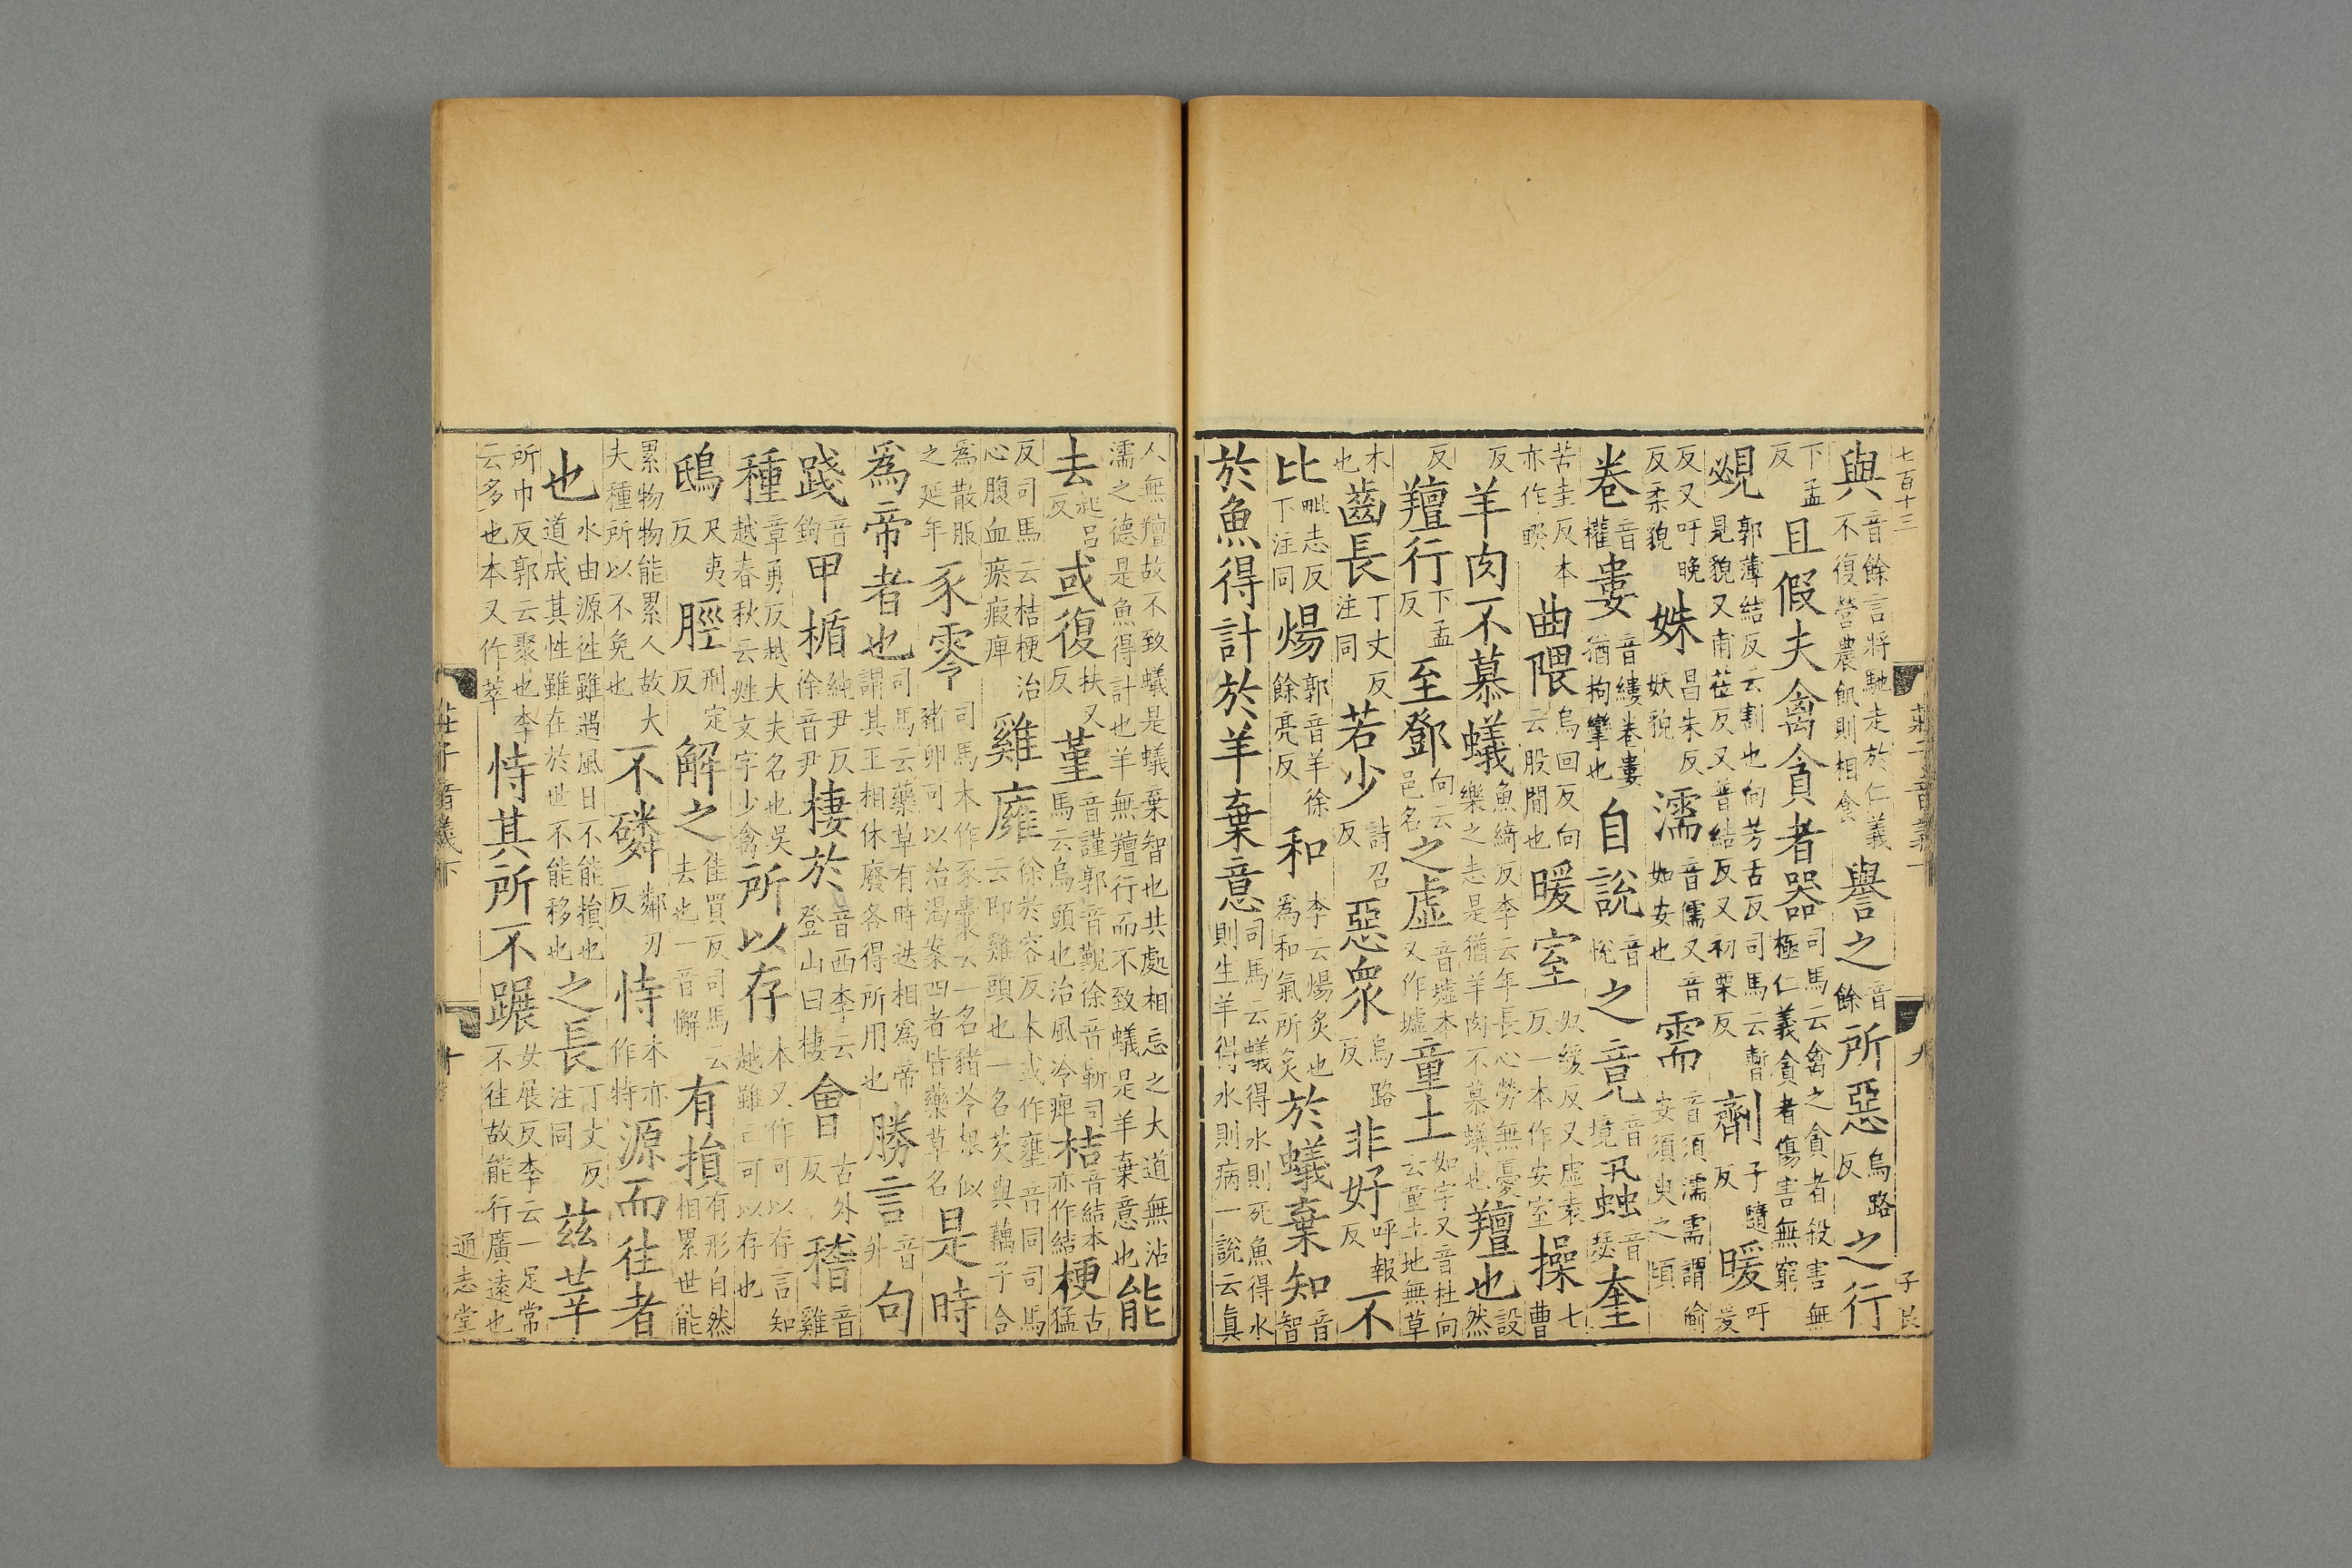 七百十三　莊子音義下　九　子民
與音餘言將馳走於仁義不復營農飢則相食譽之音餘所惡烏路反之行
下孟反且假夫禽貪者器司馬云禽之貪者殺害無極仁義貪者傷害無窮
覕郭薄結反云割也向芳舌反司馬云暫見貌又甫莅反又普結反又初栗反劑子隨反暖吁爰
反又吁晚反柔貌姝昌朱反妖貌濡音儒又音如安也需音須濡需謂偷安須臾之頃
卷音權婁音縷卷婁猶拘攣也自說音悅之竟音境虱音瑟奎
苦圭反本亦作睽曲隈烏回反向云股間也暖室奴緩反又虛袁反一本作安室操七曹
反羊肉不慕蟻魚綺反李云年長心勞無憂樂之志是猶羊肉不慕蟻也羶也設然
反羶行下孟反至鄧向云邑名之虛音墟本又作墟童土如字又音杜向云童土地無草
木也齒長丁丈反注同若少詩召反惡衆烏路反非好呼報反不
比毗志反下注同煬郭音羊徐餘亮反和李云煬炙也為和氣所炙於蟻棄知音智
於魚得計於羊棄意司馬云蟻得水則死魚得水則生羊得水則病一說云眞
人無羶故不致蟻是蟻棄智也共處相忘之大道無沾濡之德是魚得計也羊無羶行而不致蟻是羊棄意也能
去起呂反或復扶又反堇音謹郭音覲徐音靳司馬云烏頭也治風冷痺桔音結本亦作結梗古猛
反司馬云桔梗治心腹血瘀瘕痺雞廱徐於容反本或作壅音同司馬云即雞頭也一名芡與藕子合
為散服之延年豕零司馬本作豕囊云一名豬苓根似豬卵可以治渴案四者皆藥草名是時
爲帝者也司馬云藥草有時迭相為帝謂其王相休廢各得所用也勝言音升句
踐音鉤甲楯純尹反徐音尹棲於音西李云登山曰棲會古外反稽音雞
種章勇反越大夫名也吳越春秋云姓文字少禽所以存本又作可以存言知越雖亡可以存也
鴟尺夷反脛刑定反解之佳買反司馬云去也一音懈有損有形自然相累世能
累物物能累人故大夫種所以不免也不磷鄰刃反恃本亦作特源而往者
也水由源往雖遇風日不能損也道成其性雖在於世不能移也之長丁丈反注同兹莘
所巾反郭云聚也李云多也本又作萃恃其所不蹍女展反李云一足常不往故能行廣遠也
莊子音義下　十　通志堂